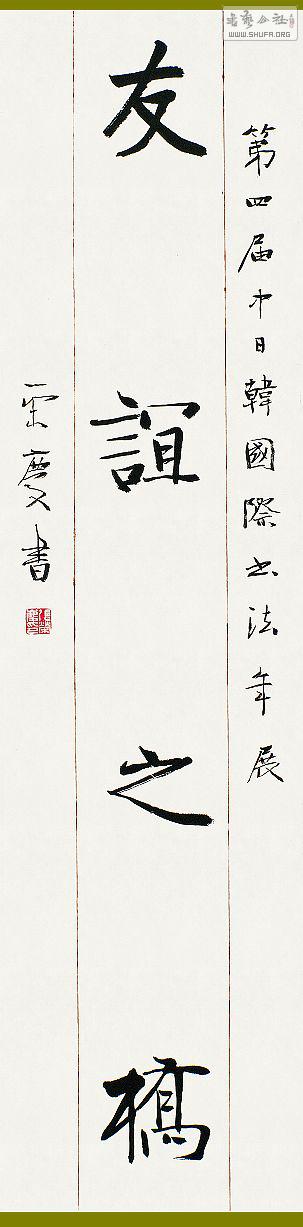 第四届中日韓國際书法年展
友誼之橋
雲慶書
書藝公社
WWW.SHUFA.ORG